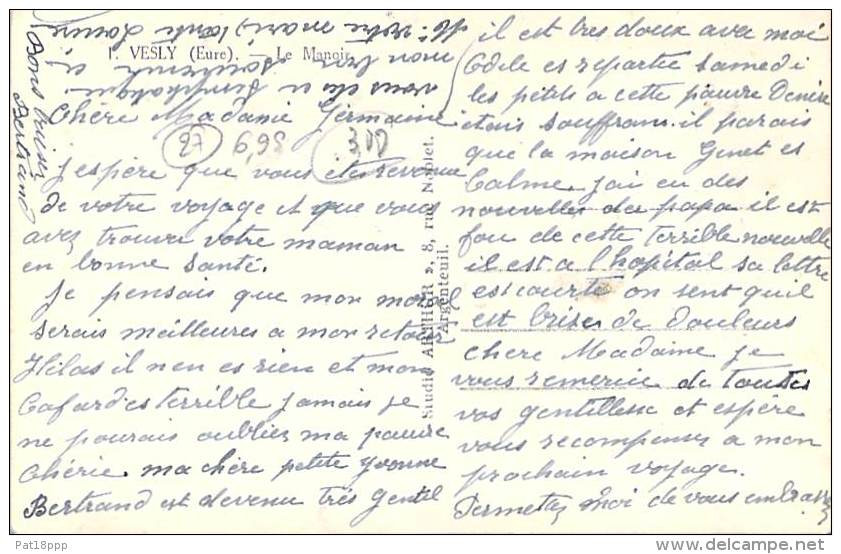 1. VESLY (Eure). — Le Manoir
Chère Madame Germaine
J'espère que vous etes revenue
de votre voyage et que vous
avez trouvu votre maman
en bonne santé.
Je pensais que mon moral
serais meilleures a mon retour
Hélas il nen es rien et mon
Cafard es terrible jamais je
ne pourais oublier ma pauvre
Chérie. ma chère petite Yvonne
Bertrand est devenu très gentil
il est tres doux avec moi
Odile es repartie samedi
les petits a cette pauvre Denise
etais souffrans. il parais
que la maison Genet es
Calme. jai eu des
nouvelles de papa il est
fou de cette terrible nouvelle
il est a l'hopital sa lettre
est courte on sent quil
est briser de douleurs
chere Madame je
vous remercie de toutes
vos gentillesse et espère
vous recompenser a mon
prochain voyage.
Permettez moi de vous embrasser
vous et a
mon bon souvenir a
votre mari,
Bons baiser
Bertrand
27
6,95
300
Studio ARTHUR, 8, rue Nablet.
[Argenteuil.
Pat18ppp
delcampe.net